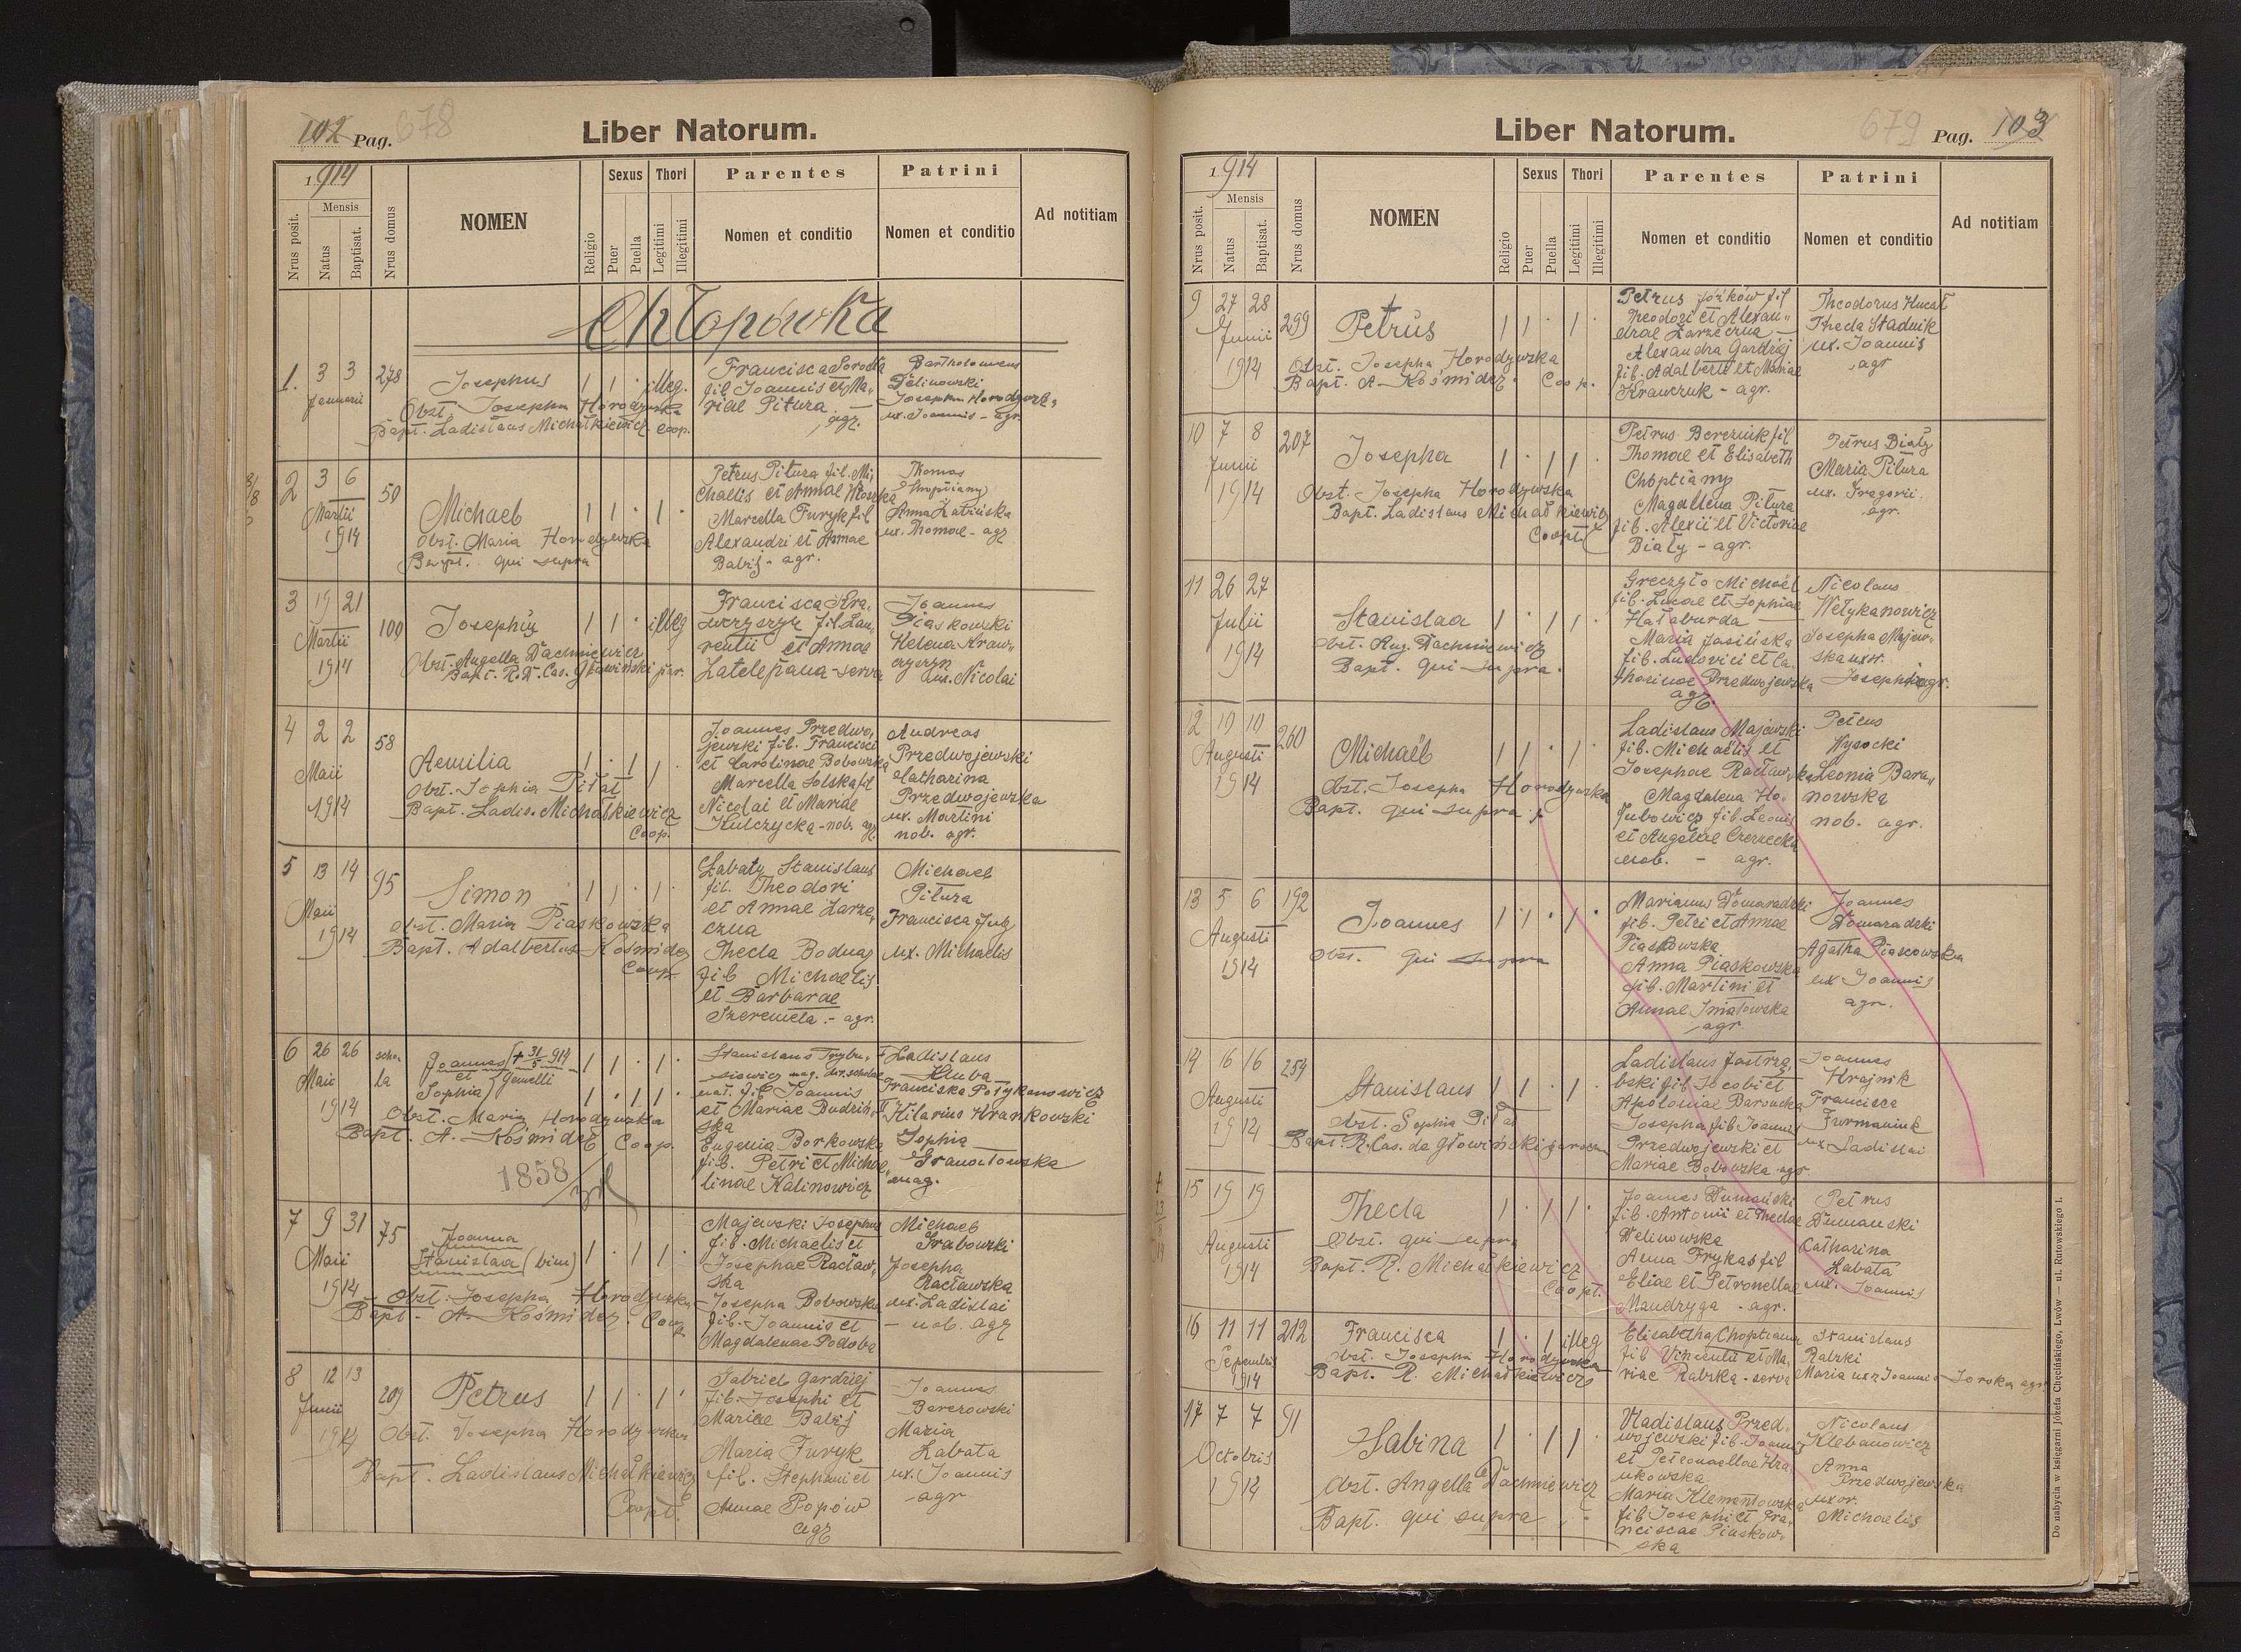 102 Pag. 678
Liber Natorum.
1914
Mensis
Nrus posit.
Natus
Baptisat.
Nrus domus
NOMEN
Religio
Sexus
Puer
Puella
Thori
Legitimi
Illegitimi
Parentes
Nomen et conditio
Patrini
Nomen et conditio
Ad notitiam
Chłopówka
1. 3 3 Januarii 278
Josephus
1 1 · illeg.
Obst. Josepha Horodyska
Bapt. Ladislaus Michałkiewicz coop.
Francisca Soroka
fil. Joannis et Ma-
riae Pitura
agr.
Bartholomeus
Delinowski
ux. Joannis - agr.
2 3 6 Martii 1914 50
Michael
1 1 · 1 ·
Obst. Maria Horodyska
Bapt. qui supra
Petrus Pitura fil. Mi-
chaelis et Annae
Marcella Furyk fil
Alexandri et Annae
Babij - agr.
Thomas
ux. Thomae - agr
3 19 21 Martii 1914 100
Josephus
1 1 · illeg
Obst. Angella Dachniewicz
Francisca Kra-
wczyszyn fil. Lau-
rentii et Annae
serva
Joannes
Piaskowski
Helena Kraw-
czyszyn
ux. Nicolai
4 2 2 Maii 1914 58
Aemilia
1 · 1 1 ·
Obst. Sophia Piłat
Bapt. Ladis. Michałkiewicz
Coop.
Joannes Przedwo-
jewski fil. Francisci
et Carolinae Bobowska
Marcella Solska fil
Nicolai et Mariae
Kulczycka - nob. agr.
Andreas
Przedwojewski
Catharina
Przedwojewska
ux. Martini
nob. agr.
5 13 14 Maii 1914 95
Simon
1 1 · 1 ·
Obst. Maria Piaskowska
Bapt. Adalbertus Kośmider
Coop.
Łabaty Stanislaus
fil. Theodori
et Annae Zarze-
czna
Thecla Bodnar
fil Michaelis
et Barbarae
Szeremeta - agr.
Michael
Pitura
Francisca
ux. Michaelis
6 26 26 Maii 1914 scho-
la
Joannes + 31/5 914
et gemelli
Sophia
1 1 · 1 ·
1 · 1 1 ·
Obst. Maria Horodyska
Bapt. A. Kośmider Coop.
1858
Stanislaus
nat. fil. Joannis
et Mariae Budziń-
ska
Eugenia Borkowska
fil. Petri et Micha-
linae Kalinowicz
Ladislaus
Hluba
Hilarius Krankowski
Sophia
mag.
7 9 31 Maii 1914 75
Joanna
Stanislaa (bin)
1 · 1 1 ·
Obst. Josepha Horodyska
Bapt. A. Kośmider. Coop.
Majewski Josephus
fil. Michaelis et
Josephae Racław-
ska
Josepha Bobowska
fil. Joannis et
Magdalenae Podoba
Michael
Grabowski
Josepha
Racławska
ux. Ladislai
- nob. agr
8 12 13 Junii 1914 209
Petrus
1 1 · 1 ·
Obst. Josepha Horodyska
Bapt. Ladislaus Michałkiewicz
Coopt.
Gabriel Gardziej
fil. Josephi et
Mariae Babij
Maria Furyk
fil. Stephani et
Annae Popów
agr
Joannes
Berezowski
Maria
Łabata
ux. Joannis
- agr
679 Pag. 103
Liber Natorum.
1914
Mensis
Nrus posit.
Natus
Baptisat.
Nrus domus
NOMEN
Religio
Sexus
Puer
Puella
Thori
Legitimi
Illegitimi
Parentes
Nomen et conditio
Patrini
Nomen et conditio
Ad notitiam
9 27 28 Junii 1914 299
Petrus
1 1 · 1 ·
Obst. Josepha Horodyska
Bapt. A. Kośmider. Coop.
Petrus Jóźków fil
Theodori et Alexan-
drae Zarzeczna
Alexandra Gardziej
fil. Adalberti et Mariae
Krawczuk - agr.
Theodorus Hucał
Thecla Stadnik
ux. Joannis
agr
10 7 8 Junii 1914 207
Josepha
1 · 1 1
Obst. Josepha Horodyska
Bapt. Ladislaus Michałkiewicz
Coopt.
Petrus Bereznik fil
Thomae et Elisabeth
Choptiany
Magdalena Pitura
fil. Alexii et Victoriae
Biały - agr.
Petrus Biały
Maria Pitura
ux. Gregorii.
agr.
11 26 27 Julii 1914
Stanislaa
1 · 1 1 ·
Obst. Ang. Dachniewicz
Bapt. qui supra.
Greczyło Michaël
fil. Lucae et Sophiae
Hałaburda
Maria Jasińska
fil. Ludovici et Ca-
tharinae Przedwojewska
agr.
Nicolaus
Wełykanowicz
Josepha Majew-
ska uxor.
Josephi agr.
12 10 10 Augusti 1914 260
Michaël
1 1 · 1 ·
Obst. Josepha Horodyska
Bapt. qui supra
Ladislaus Majewski
fil. Michaëlis et
Josephae Racławska
Magdalena Ho-
łubowicz fil. Leonis
et Angelae Czerecka
nob. - agr.
Petrus
Wysocki
Leonia Bara-
nowska
nob. agr.
13 5 6 Augusti 1914 192
Joannes
1 1 · 1 ·
Obst. qui supra
Marianus Domaradzki
fil. Petri et Annae
Piaskowska
Anna Piaskowska
fil. Martini et
Annae Ignatowska
agr
Joannes
Domaradzki
Agatha Piascowska
ux Joannis
agr.
14 16 16 Augusti 1914 254
Stanislaus
1 1 · 1 ·
Obst. Sophia Piłat
Bapt. R. Cas. de Głowiński paroch
Ladislaus Jastrzę-
bski fil Jacobi et
Apoloniae Barsucka
Josepha fil Joannis
Przedwojewski et
Mariae Bobowska agr.
Joannes
Krajnik
Francisca
Furmaniuk
ux. Ladislai
15 19 19 Augusti 1914
Thecla
1 · 1 1 ·
Obst. qui supra
Bapt. R. Michałkiewicz
Coopt.
Joannes Dumański
fil. Antonii et Theclae
Welinowska
Anna Frykas fil
Eliae et Petronellae
Mandryga - agr.
Petrus
Dumanski
Catharina
Łabata
ux. Joannis
16 11 11 Septembris 1914 212
Francisca
1 · 1 illeg
Obst. Josepha Horodyska
Bapt. R. Michałkiewicz
Elisabetha Choptiana
fil Vincentii et Ma-
riae Rabska - serva
Stanislaus
Rabski
Maria uxor Joannis Soroka agr.
17 7 7 Octobris 1914 91
Sabina
1 · 1 1
Obst. Angella Dachniewicz
Bapt. qui supra
Vladislaus Przed-
wojewski fil. Joannis
et Petronellae Kra-
nkowska
Maria Klementowska
fil Josephi et Fra-
nciscae Piaskow-
ska
Nicolaus
Klebanowicz
Anna
Przedwojewska
uxor.
Michaelis
Do nabycia w księgarni Józefa Chęcińskiego, Lwów — ul. Rutowskiego 1.